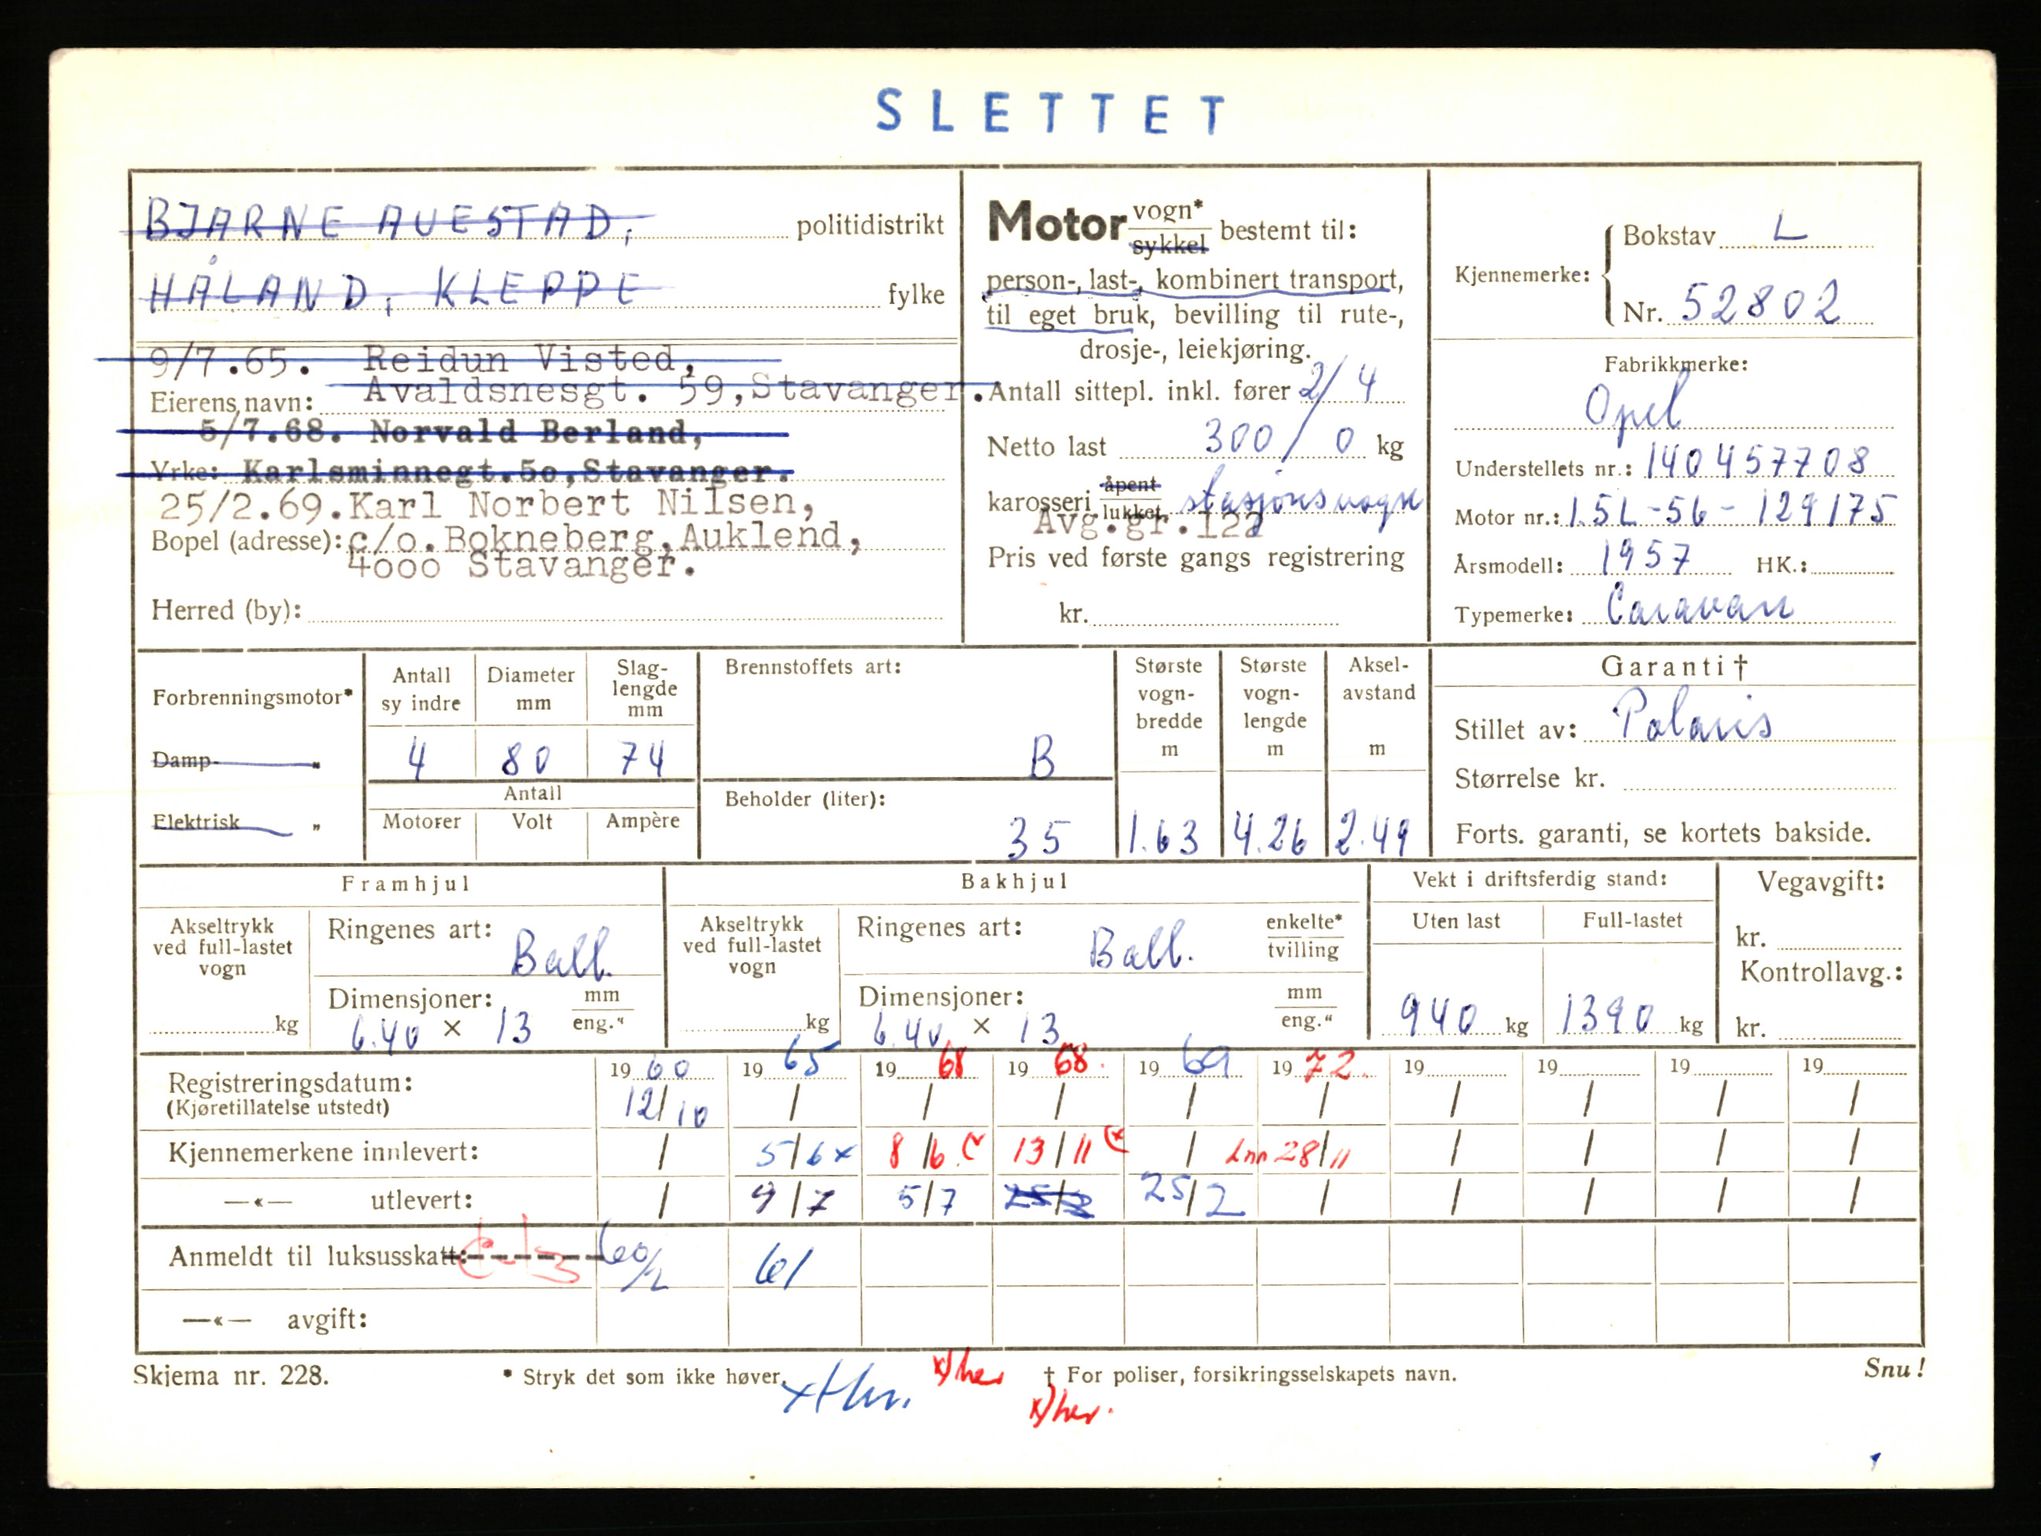 SLETTET
BJARNE AUESTAD, politidistrikt
HÅLAND, KLEPPE fylke
9/7.65. Reidun Visted,
Avaldsnesgt. 59, Stavanger.
Eierens navn:
5/7.68. Norvald Berland,
Yrke: Karlsminnegt.5o, Stavanger.
25/2.69. Karl Norbert Nilsen,
Bopel (adresse): c/o. Bokneberg, Auklend,
4ooo Stavanger.
Herred (by):
Motor vogn* sykkel bestemt til:
person-, last-, kombinert transport,
til eget bruk, bevilling til rute-,
drosje-, leiekjøring.
Antall sittepl. inkl. fører 2/4
Netto last 300/0 kg
karosseri åpent lukket stasjonsvogn
Avg.gr.122
Pris ved første gangs registrering
kr.
Kjennemerke: Bokstav L
Nr. 52802
Fabrikkmerke:
Opel
Understellets nr.: 140457708
Motor nr.: 1.5L-56-129175
Årsmodell: 1957 HK.:
Typemerke: Caravan
Forbrenningsmotor*
Damp- „
Elektrisk „
Antall sy indre
4
Diameter mm
80
Slag-lengde mm
74
Antall
Motorer Volt Ampère
Brennstoffets art:
B
Beholder (liter):
35
Største vogn-bredde m
1.63
Største vogn-lengde m
4.26
Aksel-avstand m
2.49
Garanti †
Stillet av: Polaris
Størrelse kr.
Forts. garanti, se kortets bakside.
Framhjul
Akseltrykk ved full-lastet vogn
kg
Ringenes art: Ball.
Dimensjoner: mm eng."
6.40 × 13
Bakhjul
Akseltrykk ved full-lastet vogn
kg
Ringenes art: Ball. enkelte* tvilling
Dimensjoner: mm eng."
6.40 × 13
Vekt i driftsferdig stand:
Uten last Full-lastet
940 kg 1390 kg
Vegavgift:
kr.
Kontrollavg.:
kr.
Registreringsdatum: 1960 1965 1968 1968. 1969 1972. 19 19 19 19
(Kjøretillatelse utstedt) 12/10 / / / / / / / / /
Kjennemerkene innlevert: / 5/6 x 8/6 (x 13/11 (x / Inn 28/11 / / / /
—«— utlevert: / 9/7 5/7 25/2 25/2 / / / / /
Anmeldt til luksusskatt: 60/2 61
—«— avgift:
Skjema nr. 228. * Stryk det som ikke høver. † For poliser, forsikringsselskapets navn. Snu!
x) her
x) her.